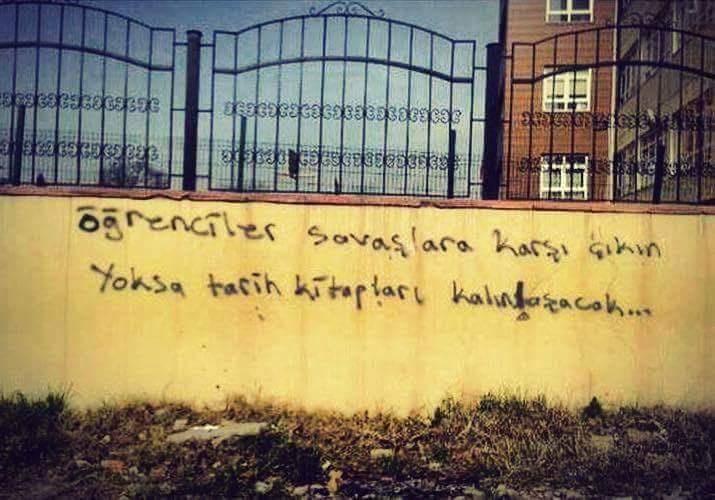 öğrenciler savaşlara karşı çıkın
Yoksa tarih kitapları kalınlaşacak...